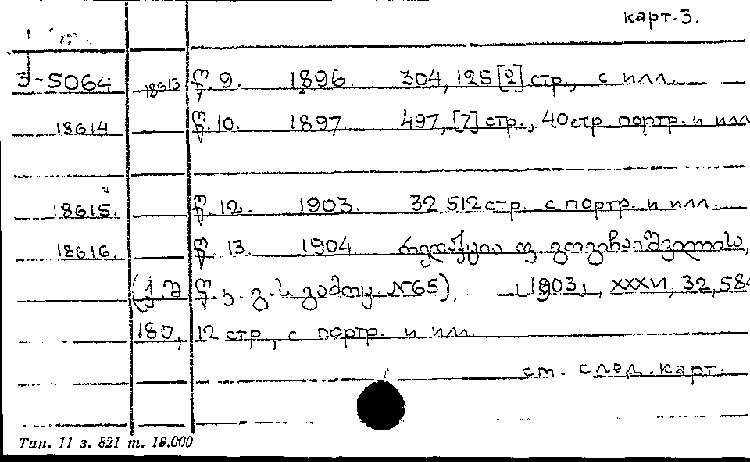 карт. 3.
З-5064 18613 წ. 9. 1896. 304, 125 [2] стр., с илл.
18614 წ. 10. 1897. 497, [7] стр., 40 стр. портр. и илл
18615. წ. 12. 1903. 32 512 стр. с портр. и илл.
18616. წ. 13. 1904
წ. გ. ს. გამოც. №65) 1903, XXXVI, 32, 584
180, 12 стр., с портр. и илл.
см. след. карт.
Тип. 11 з. 821 т. 10.000